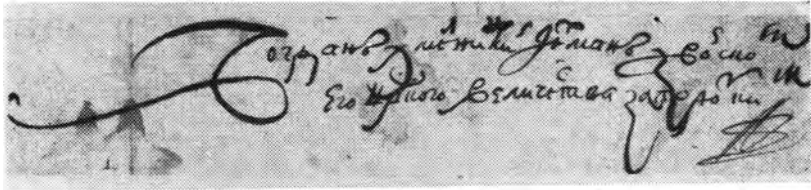 Богданъ Хмелницкий Гетманъ з Войском
Его Црского Величества Запорозким